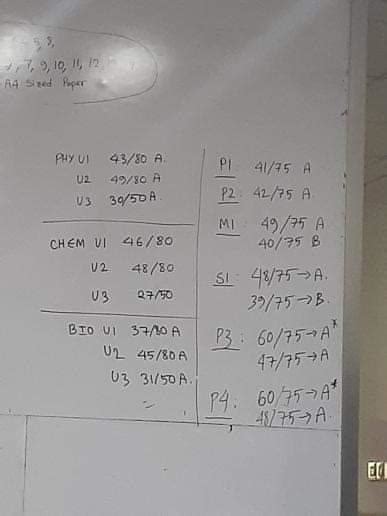 5, 8,
7, 9, 10, 11, 12,
A4 Sized Paper
PHY U1 43/80 A.
U2 49/80 A
U3 30/50 A.
CHEM U1 46/80
U2 48/80
U3 27/50
BIO U1 37/80 A
U2 45/80 A
U3 31/50 A.
P1 : 41/75 A
P2 : 42/75 A.
M1 : 49/75 A
40/75 B
S1 : 48/75→A.
39/75→B.
P3 : 60/75→A*
47/75→A
P4 : 60/75→A*
48/75→A.